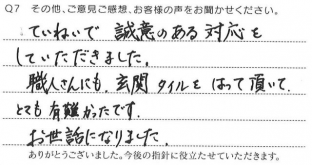 Q7 その他、ご意見ご感想、お客様の声をお聞かせください。
ていねいで 誠意のある対応を
していただきました。
職人さんにも、玄関タイルをはって頂いて、
とても有難かったです。
お世話になりました。
ありがとうございました。今後の指針に役立たせていただきます。